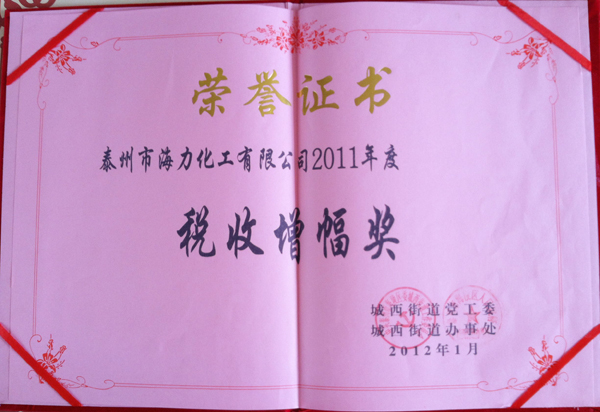 荣誉证书
泰州市海力化工有限公司2011年度
税收增幅奖
城西街道党工委
城西街道办事处
2012年1月